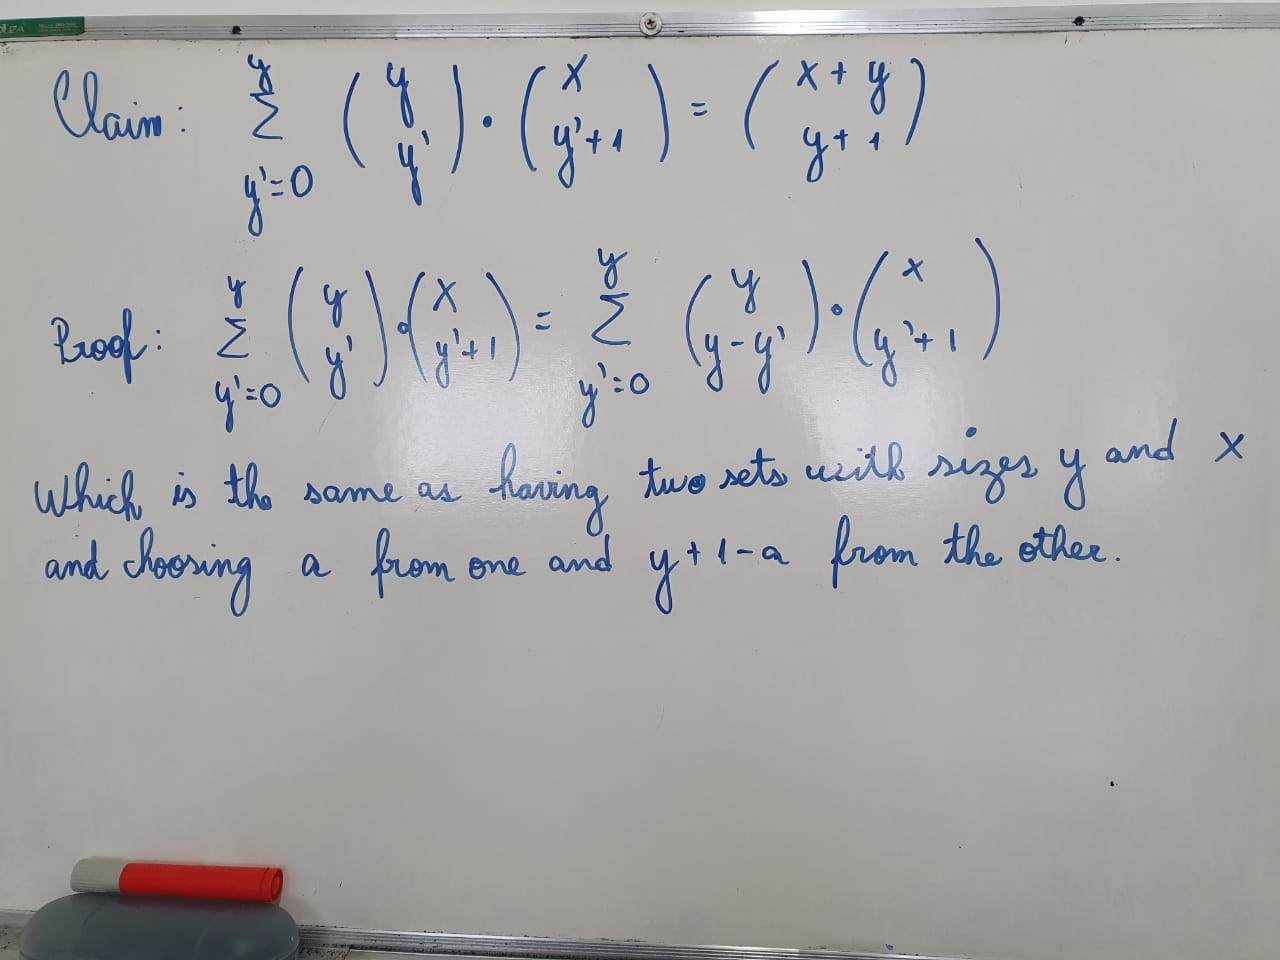 Claim: $\sum_{y'=0}^{y} \binom{y}{y'} \cdot \binom{x}{y'+1} = \binom{x+y}{y+1}$
Proof: $\sum_{y'=0}^{y} \binom{y}{y'} \cdot \binom{x}{y'+1} = \sum_{y'=0}^{y} \binom{y}{y-y'} \cdot \binom{x}{y'+1}$
Which is the same as having two sets with sizes y and x
and choosing a from one and y+1-a from the other.